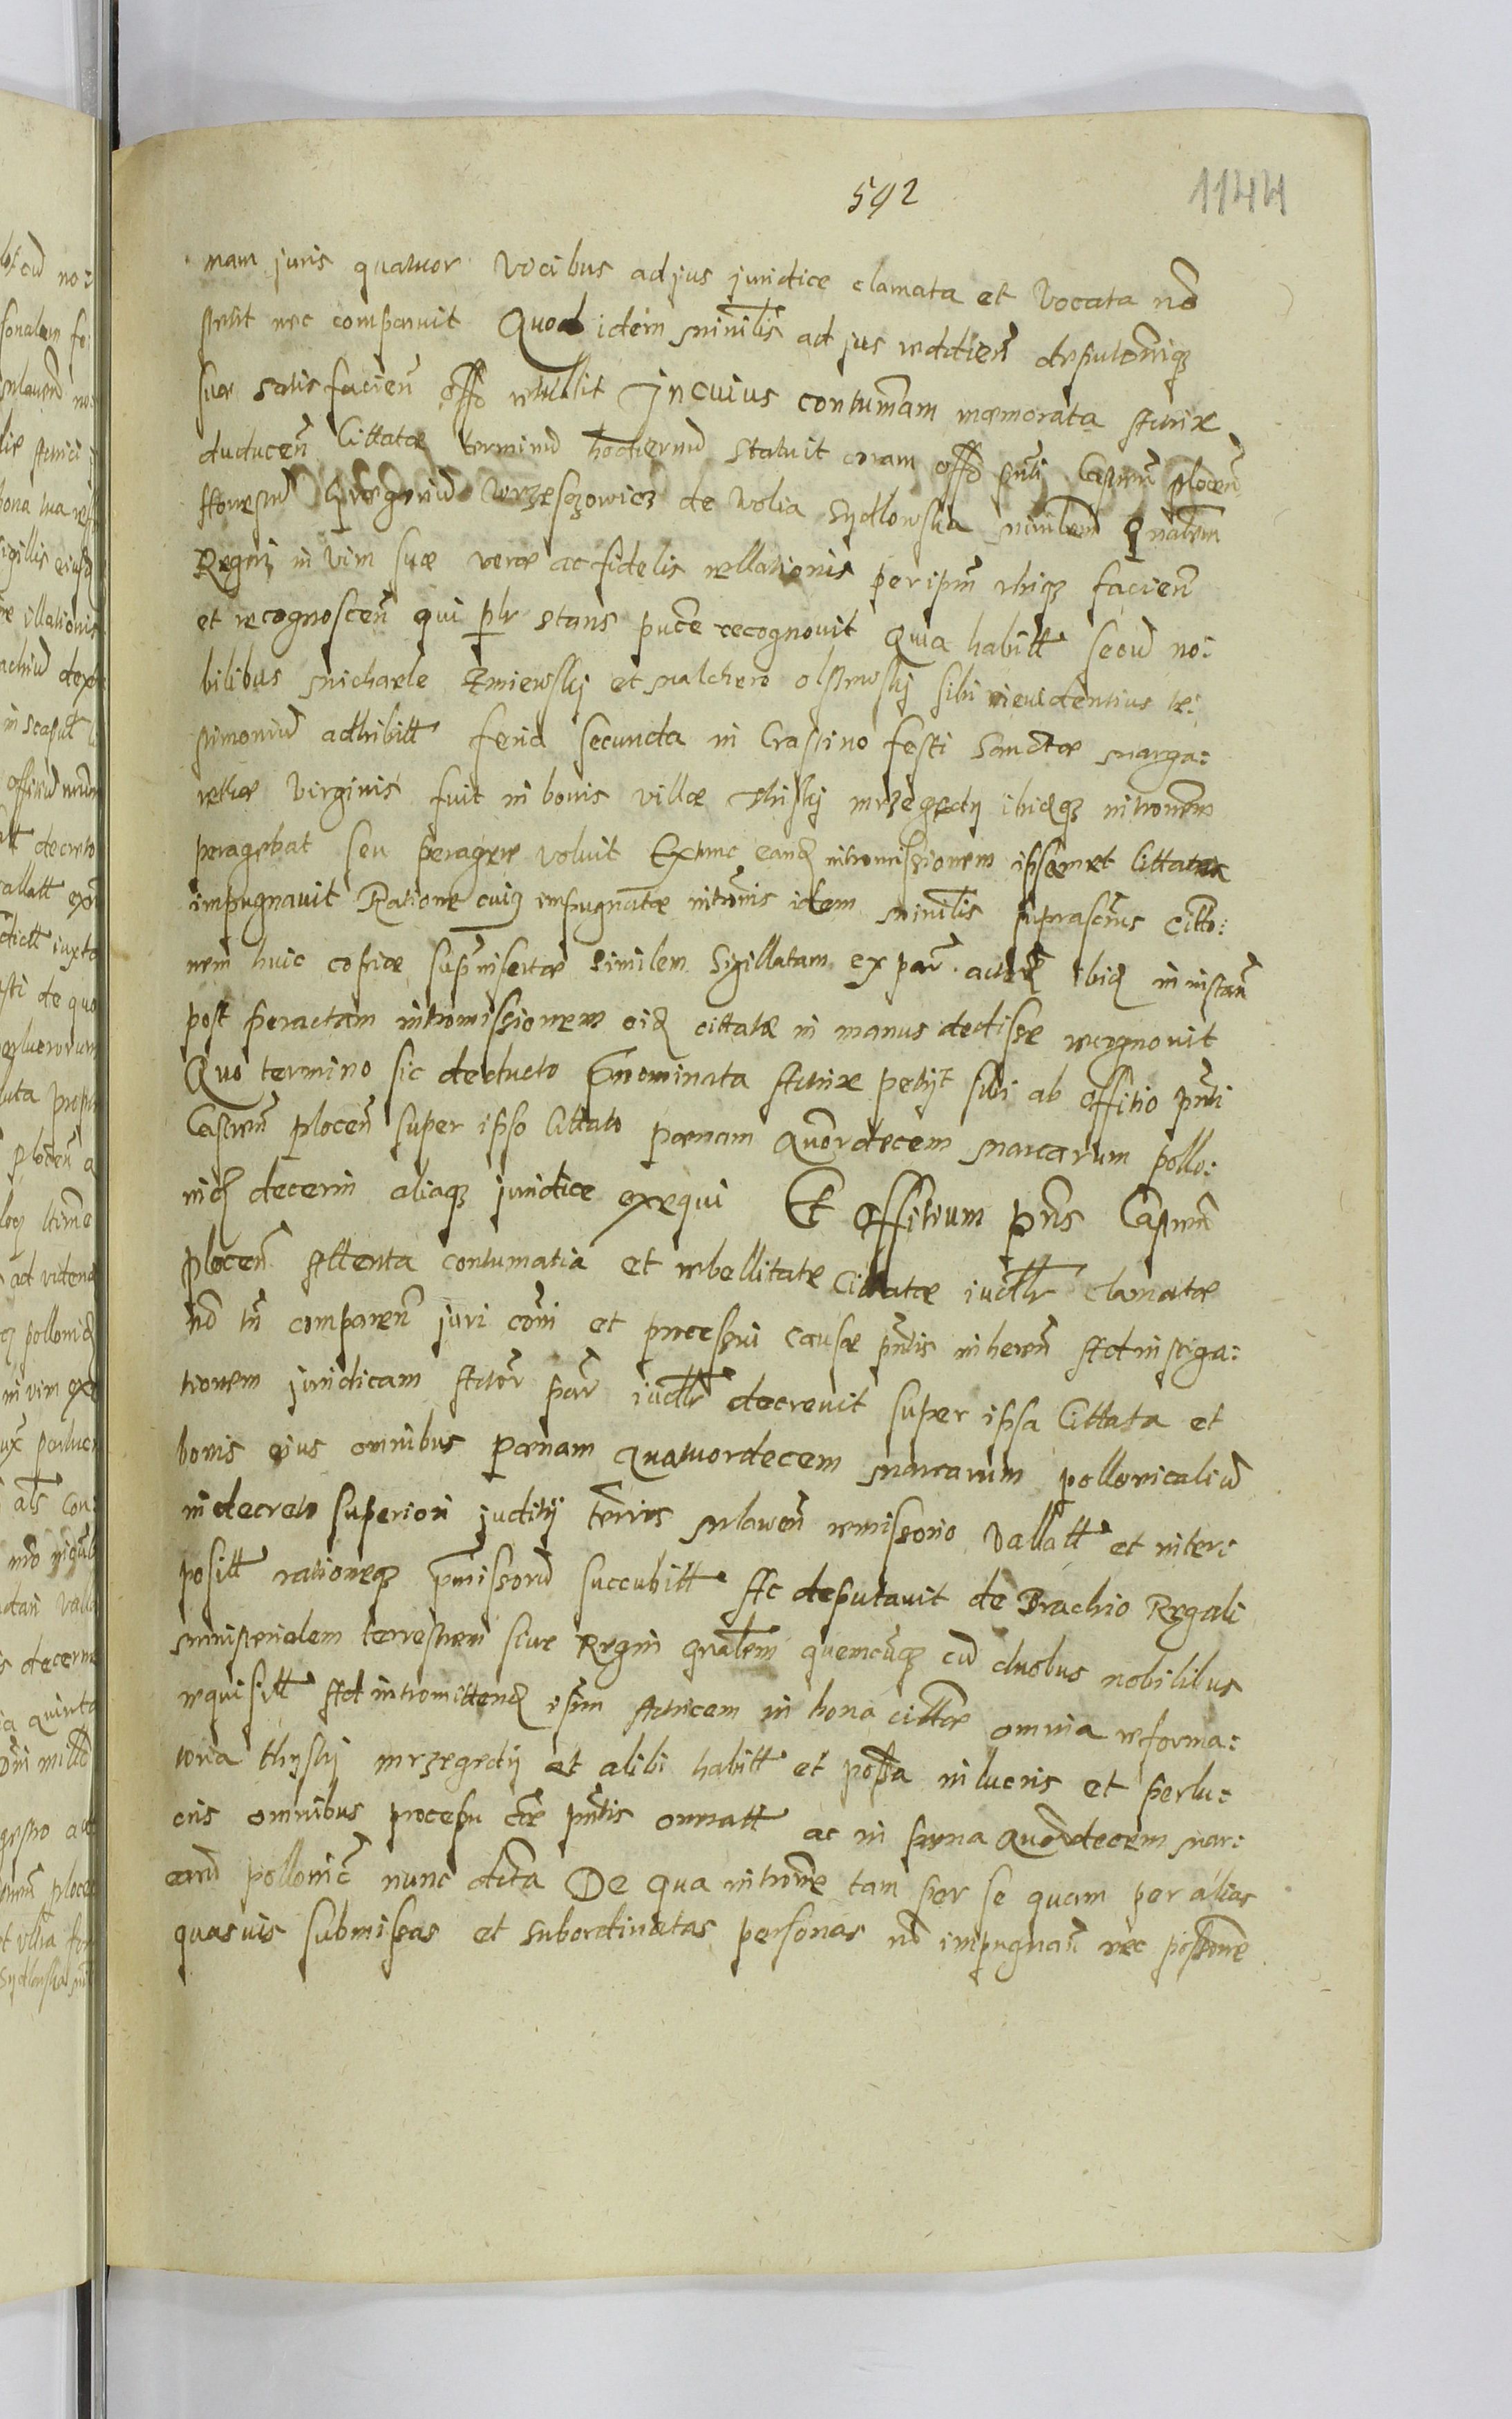 592
1144
nam juris quatuor vocibus ad jus juridice clamata et vocata nõ
stetit nec comparuit Quod idem minilis̃ ad jus reddien̄ deputõniqȝ
suæ satisfacien̄ offõ retullit In cuius contumãm memorata Actrix
ducen̄ Cittatæ terminũ hodiernũ statuit coram offõ pñti Castren̄ plocen̄
honestũ Gregoriũ Wrzesczowicz de Wolia Sydlowska minilem̃ gñalem̃
Regni in vim suæ veræ ac fidelis rellationis per ipm̃ facien̄
et recognoscen̄ qui plr̃ stans pnce recognovit Quia habitt secũ no:
bilibus Michaele Zmiewskij et Malchero Olszewskij sibi in evidentius te:
stimoniũ adhibitt feria secunda in Crastino festi Sanctæ Marga:
rethæ virginis fuit in bonis villæ Thiskj mrzegedij ibidqȝ intronem̃
peragebat seu peragere voluit Extunc eand intromissionem ipsemet Cittata
impugnavit Ratione cuiȝ impugnatæ intrõnis idem minilis̃ suprascrius̃ citto:
nem huic copiæ supn̄insertæ similem sigillatam ex par̃ actric̃ ibid in instan̄
post peractam intromissionem eid cittatæ in manus dedisse recognovit
Quo termino sic deducto pñominata Actrix petijt sibi ab offitio pñti
Castren̄ plocen̄ super ipso Cittato pœnam quordecem marcarum pollo:
nicl decerni aliaqȝ juridice exequi Et Offitium pñs Castren̄
plocen̄ Attenta contumatia et rebellitate Cittatæ iudllr clamatæ
nõ tñ comparen̄ juri coñi et processui causæ pñtis inheren̄ Ad instiga:
tionem juridicam Actor̃ par̃ iudllr decrevit super ipsa Cittata et
bonis ejus omnibus pœnam quatuordecem marcarum pollonicaliũ
in decreto superiori juditij terris̃ mlawen̄ remissorio vallatt et inter:
positt rationeqȝ pmissorũ succubitt Ac deputavit de Brachio Regali
ministerialem terrestrem sive Regni gñalem̃ quemcũqȝ cũ duobus nobilibus
requisitt Ad intromittend ipm̃ Actricem in bona cittæ omnia reforma:
toria thyskj mrzegedij et alibi habitt et possa in lucris et perlu:
cris omnibus processu cæ pñtis onnatt ac in pœna quordecem mar:
carũ pollonic̃ nunc dicta De qua introne tam per se quam per alias
quasvis submissas et subordinatas personas nõ impugnan̄ nec possone